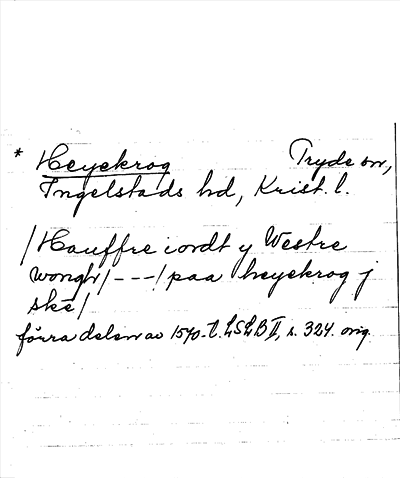 * Heyekrog Tryde sn,
Ingelstads hd, Krist. l.
/Hauffre iordt y Westre
wongh/---/paa heyekrog j
ske/
förra delen av 1570-t. LSLB II, s. 324. orig.